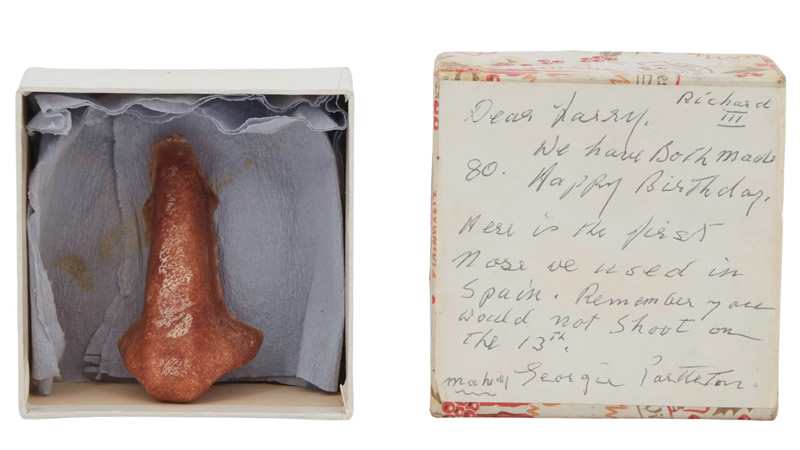 Dear Larry. Richard
III
We have Both made
80. Happy Birthday.
Here is the first
Nose we used in
Spain. Remember you
would not Shoot on
the 13th.
Georgie Partleton.